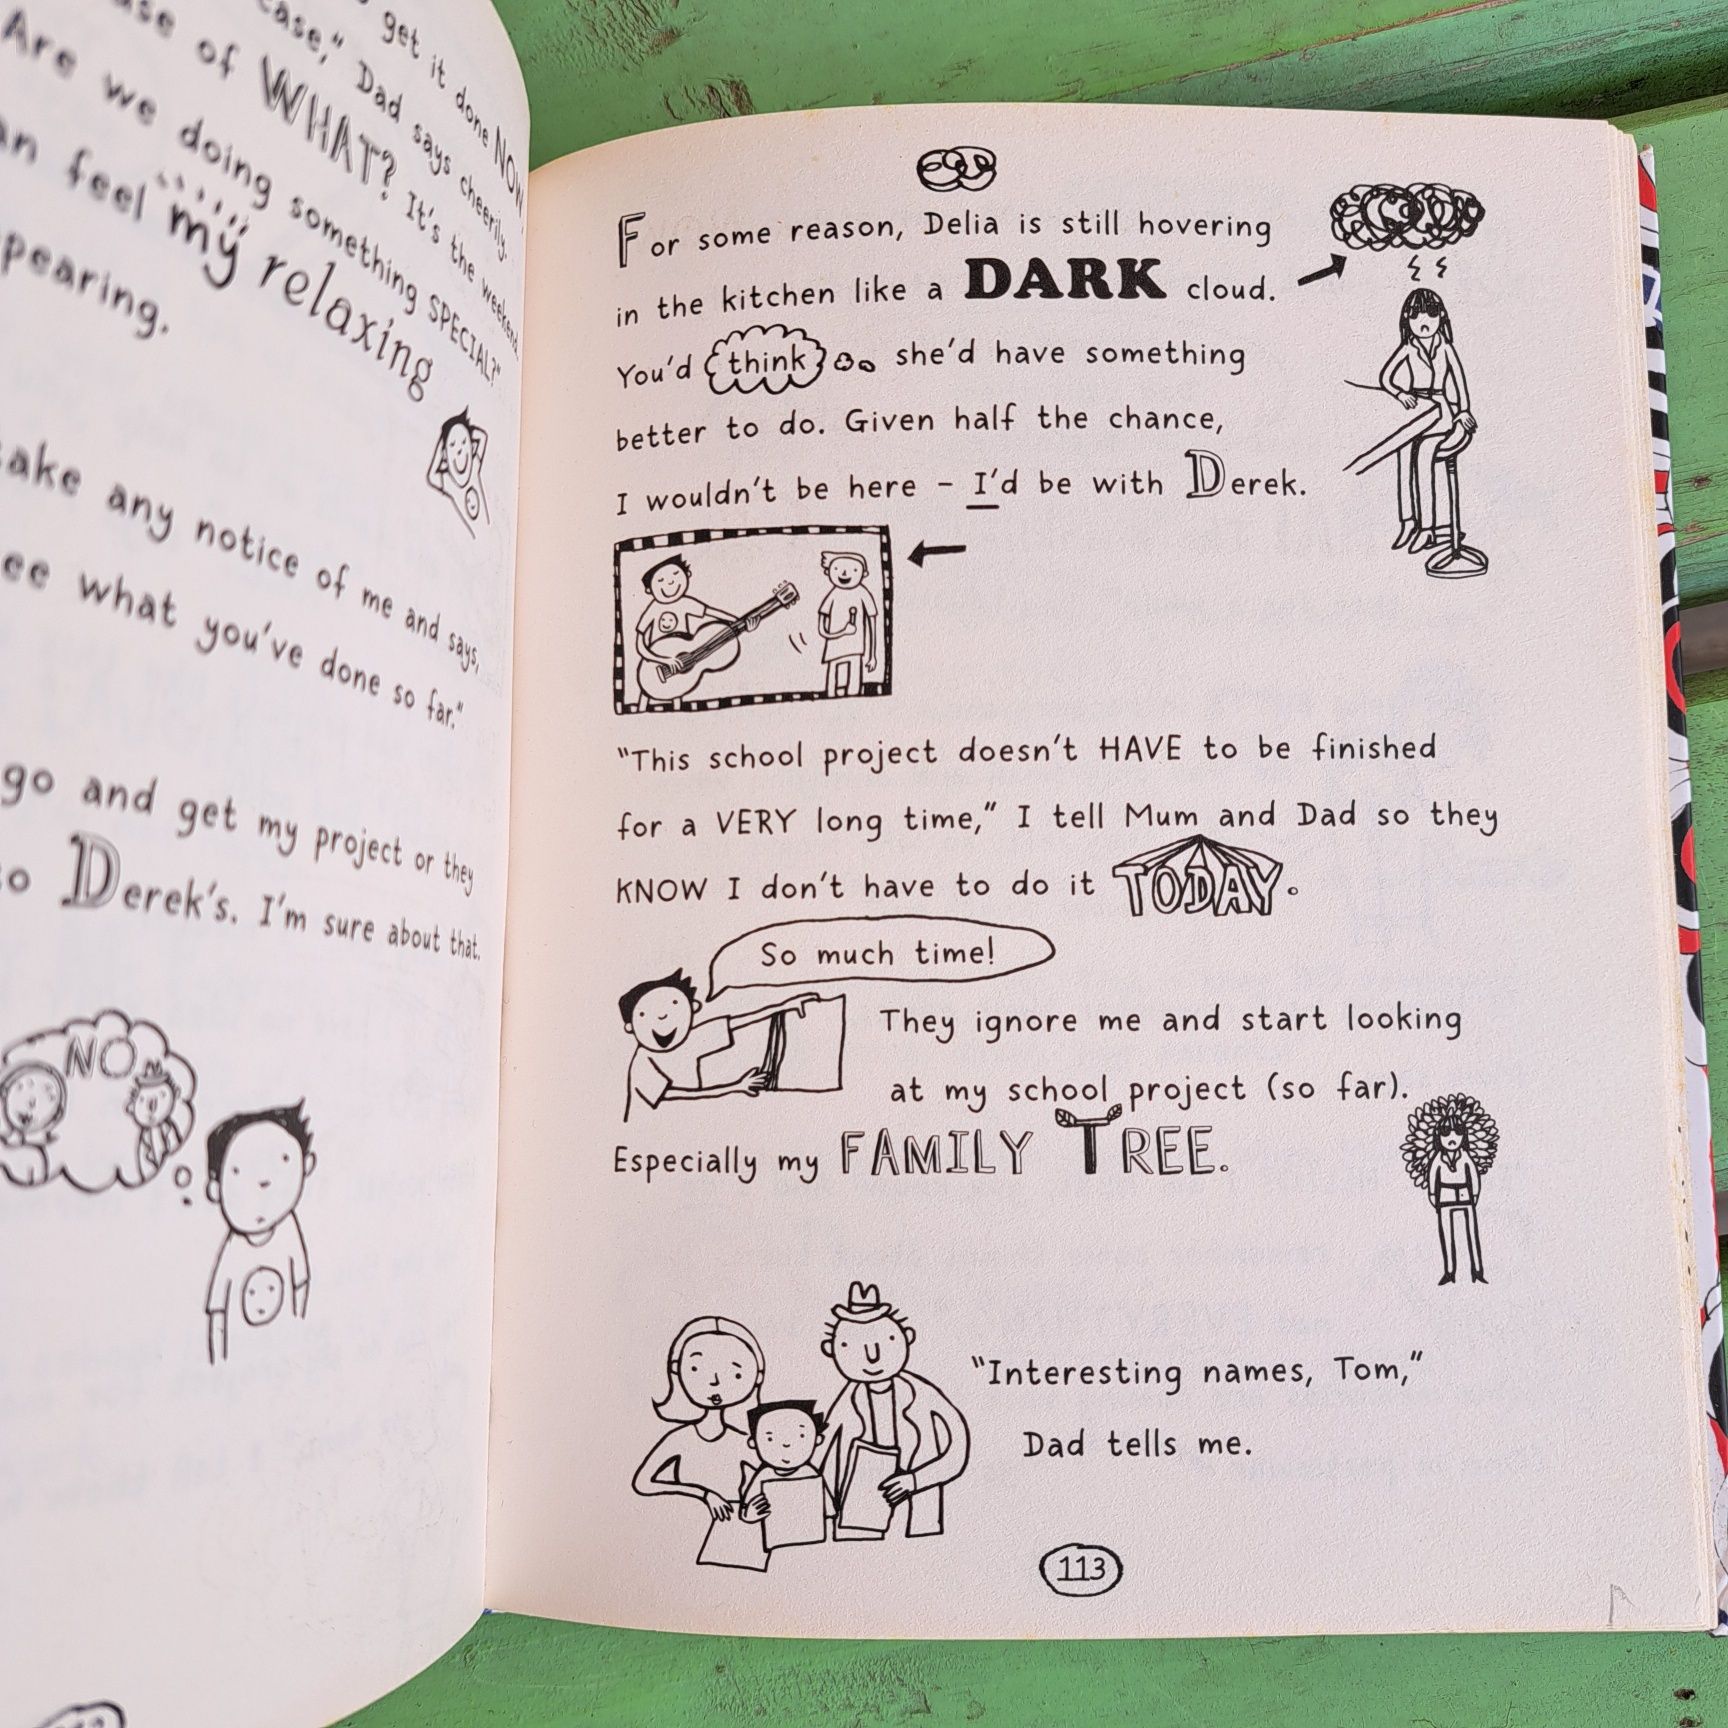 get it done NOW,
case," Dad says cheerily.
of WHAT? It's the weekend.
Are we doing something SPECIAL?"
feel my relaxing
any notice of me and says,
what you've done so far."
go and get my project or they
Derek's. I'm sure about that.
NO
For some reason, Delia is still hovering
in the kitchen like a DARK cloud.
You'd think she'd have something
better to do. Given half the chance,
I wouldn't be here – I'd be with Derek.
"This school project doesn't HAVE to be finished
for a VERY long time," I tell Mum and Dad so they
KNOW I don't have to do it TODAY.
So much time!
They ignore me and start looking
at my school project (so far).
Especially my FAMILY TREE.
"Interesting names, Tom,"
Dad tells me.
113